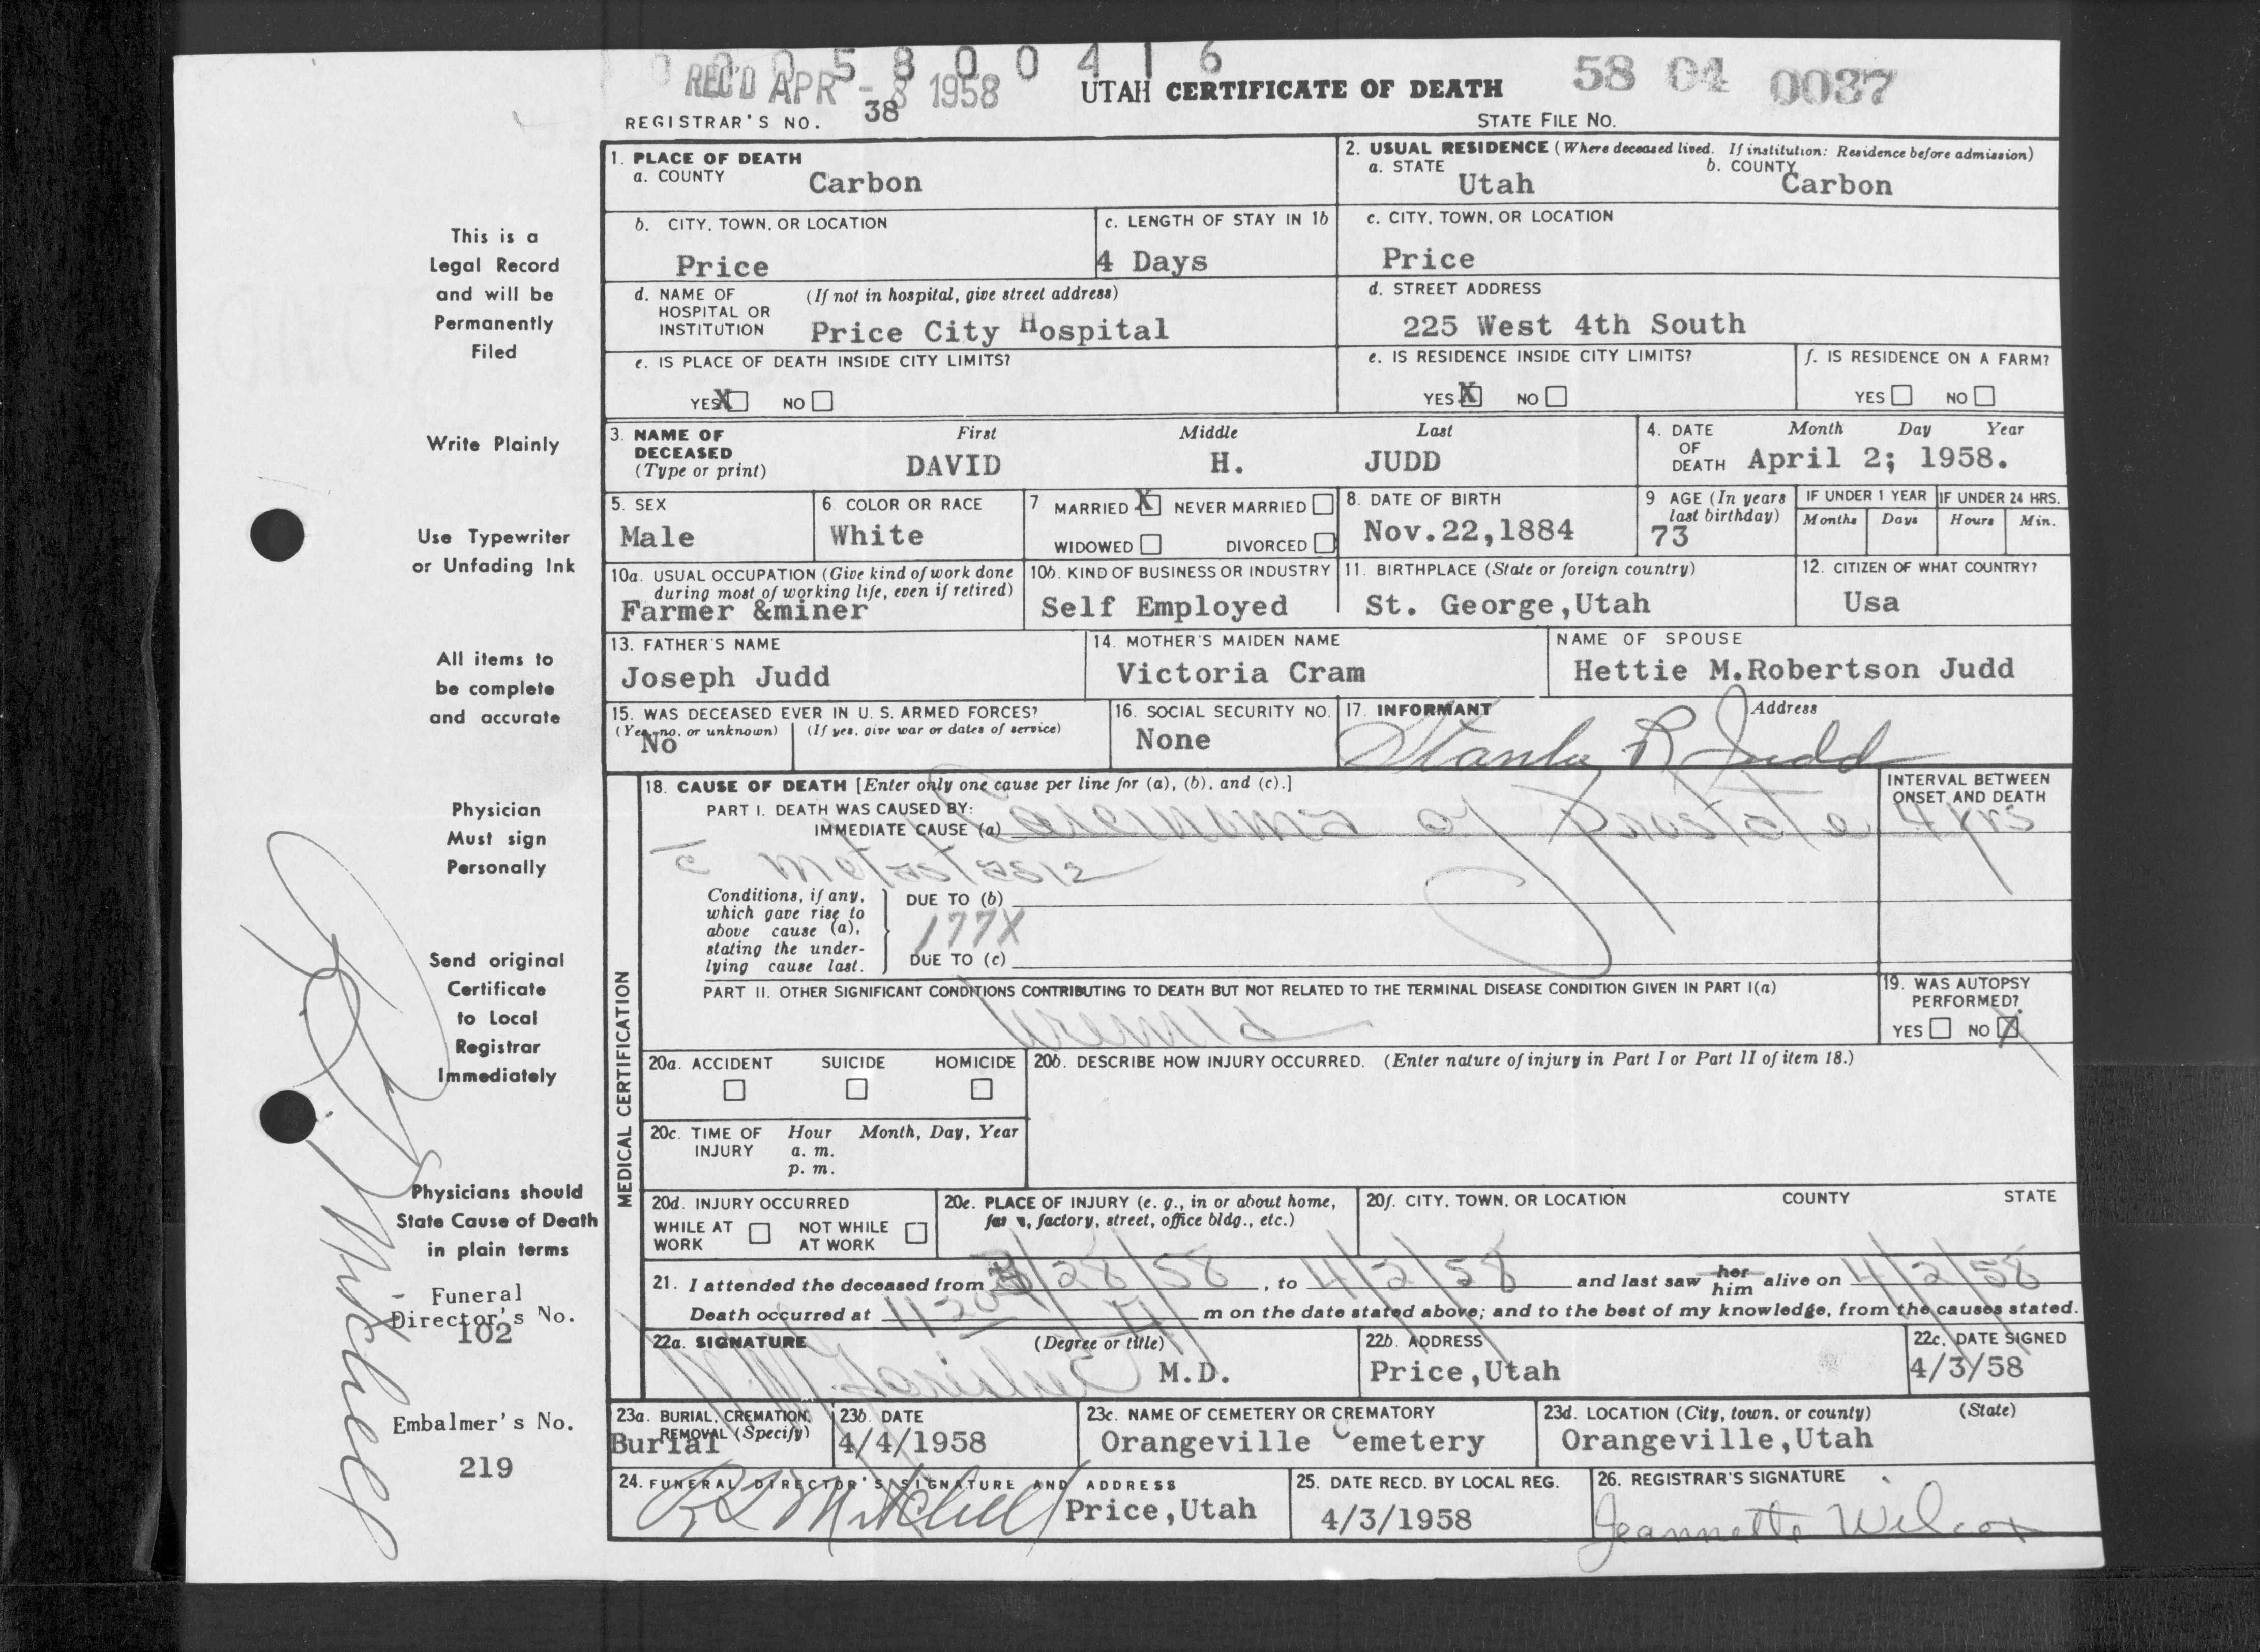 0 0 0 5 8 0 0 4 1 6
REC'D APR - 8 1958
UTAH CERTIFICATE OF DEATH
58 04 0037
REGISTRAR'S NO. 38
STATE FILE NO.
1. PLACE OF DEATH
a. COUNTY Carbon
2. USUAL RESIDENCE (Where deceased lived. If institution: Residence before admission)
a. STATE Utah b. COUNTY Carbon
b. CITY, TOWN, OR LOCATION
Price
c. LENGTH OF STAY IN 1b
4 Days
c. CITY, TOWN, OR LOCATION
Price
d. NAME OF HOSPITAL OR INSTITUTION (If not in hospital, give street address)
Price City Hospital
d. STREET ADDRESS
225 West 4th South
e. IS PLACE OF DEATH INSIDE CITY LIMITS?
YES X NO
e. IS RESIDENCE INSIDE CITY LIMITS?
YES X NO
f. IS RESIDENCE ON A FARM?
YES NO
3. NAME OF DECEASED (Type or print)
First Middle Last
DAVID H. JUDD
4. DATE OF DEATH
Month Day Year
April 2; 1958.
5. SEX
Male
6. COLOR OR RACE
White
7 MARRIED X NEVER MARRIED
WIDOWED DIVORCED
8. DATE OF BIRTH
Nov.22,1884
9 AGE (In years last birthday)
73
IF UNDER 1 YEAR
Months Days
IF UNDER 24 HRS.
Hours Min.
10a. USUAL OCCUPATION (Give kind of work done
during most of working life, even if retired)
Farmer &miner
10b. KIND OF BUSINESS OR INDUSTRY
Self Employed
11. BIRTHPLACE (State or foreign country)
St. George,Utah
12. CITIZEN OF WHAT COUNTRY?
Usa
13. FATHER'S NAME
Joseph Judd
14. MOTHER'S MAIDEN NAME
Victoria Cram
NAME OF SPOUSE
Hettie M.Robertson Judd
15. WAS DECEASED EVER IN U. S. ARMED FORCES?
(Yes, no, or unknown) (If yes, give war or dates of service)
No
16. SOCIAL SECURITY NO.
None
17. INFORMANT Address
Stanley R Judd
MEDICAL CERTIFICATION
18. CAUSE OF DEATH [Enter only one cause per line for (a), (b), and (c).]
PART I. DEATH WAS CAUSED BY:
IMMEDIATE CAUSE (a) Carcinoma of prostate
c̄ metastasis
INTERVAL BETWEEN
ONSET AND DEATH
4 yrs
Conditions, if any,
which gave rise to
above cause (a),
stating the under-
lying cause last.
DUE TO (b)
177X
DUE TO (c)
PART II. OTHER SIGNIFICANT CONDITIONS CONTRIBUTING TO DEATH BUT NOT RELATED TO THE TERMINAL DISEASE CONDITION GIVEN IN PART I(a)
Uremia
19. WAS AUTOPSY
PERFORMED?
YES NO X
20a. ACCIDENT SUICIDE HOMICIDE
20b. DESCRIBE HOW INJURY OCCURRED. (Enter nature of injury in Part I or Part II of item 18.)
20c. TIME OF INJURY Hour Month, Day, Year
a. m.
p. m.
20d. INJURY OCCURRED
WHILE AT WORK NOT WHILE AT WORK
20e. PLACE OF INJURY (e. g., in or about home,
farm, factory, street, office bldg., etc.)
20f. CITY, TOWN, OR LOCATION COUNTY STATE
21. I attended the deceased from 3/28/58, to 4/2/58 and last saw her him alive on 4/2/58
Death occurred at 11:20 m on the date stated above; and to the best of my knowledge, from the causes stated.
22a. SIGNATURE (Degree or title)
M.D.
22b. ADDRESS
Price,Utah
22c. DATE SIGNED
4/3/58
23a. BURIAL, CREMATION,
REMOVAL (Specify)
Burial
23b. DATE
4/4/1958
23c. NAME OF CEMETERY OR CREMATORY
Orangeville Cemetery
23d. LOCATION (City, town, or county) (State)
Orangeville,Utah
24. FUNERAL DIRECTOR'S SIGNATURE AND ADDRESS
R L Mitchell Price,Utah
25. DATE RECD. BY LOCAL REG.
4/3/1958
26. REGISTRAR'S SIGNATURE
Jeannette Wilcox
This is a
Legal Record
and will be
Permanently
Filed
Write Plainly
Use Typewriter
or Unfading Ink
All items to
be complete
and accurate
Physician
Must sign
Personally
Send original
Certificate
to Local
Registrar
Immediately
Physicians should
State Cause of Death
in plain terms
Funeral
Director's No.
102
Embalmer's No.
219
Mitchell